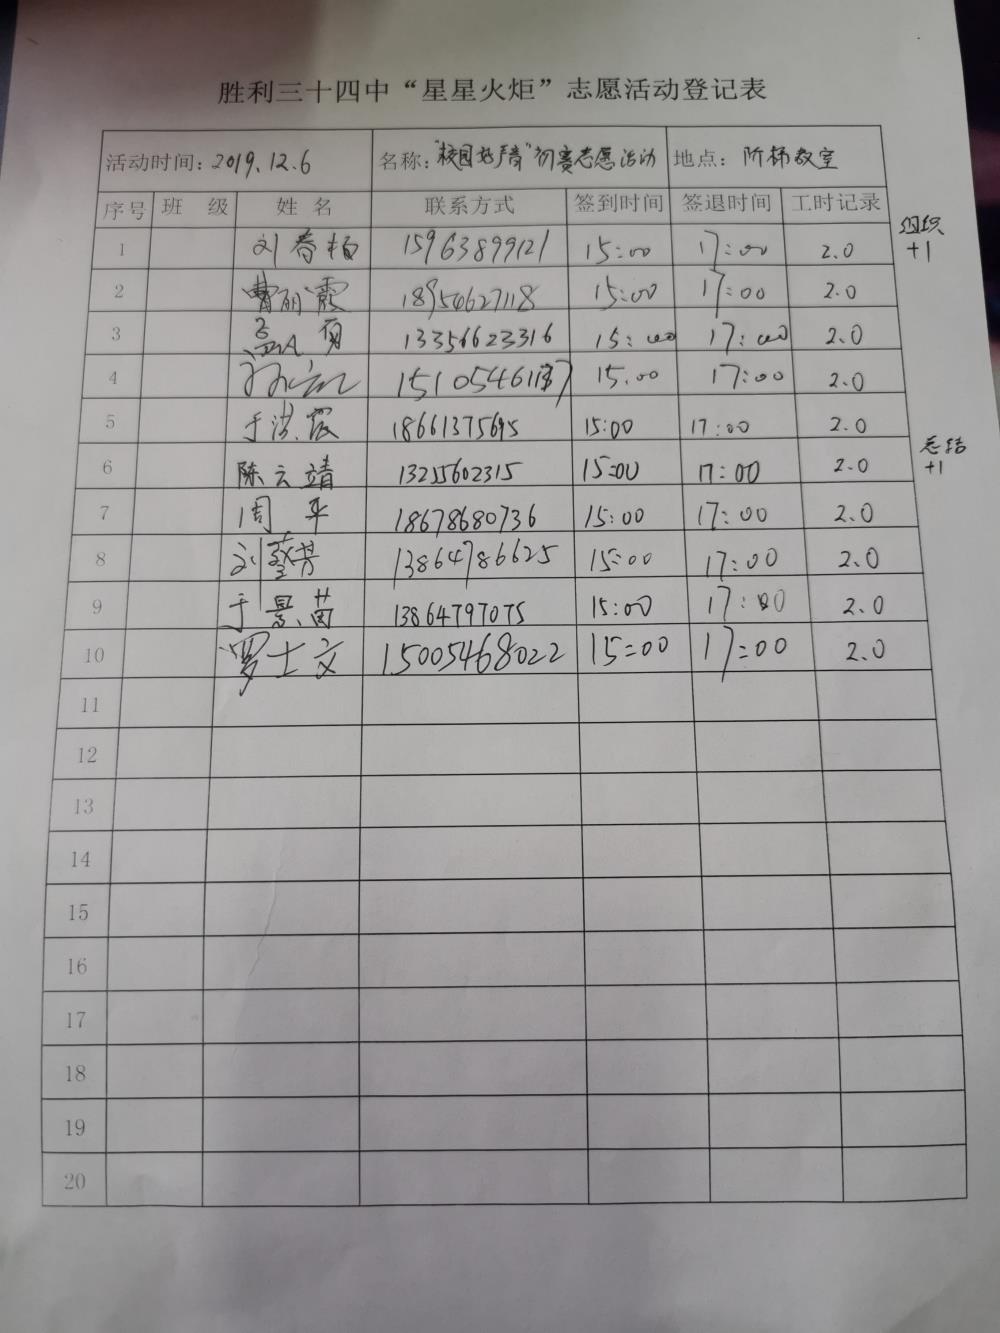 胜利三十四中“星星火炬”志愿活动登记表
活动时间：2019.12.6 名称：“校园好声音”初赛志愿活动 地点：阶梯教室
序号 班 级 姓 名 联系方式 签到时间 签退时间 工时记录
1 刘春杨 15963899121 15:00 17:00 2.0 组织+1
2 曹丽霞 18954627118 15:00 17:00 2.0
3 13356623316 15:00 17:00 2.0
4 15:00 17:00 2.0
5 于洪霞 18661375695 15:00 17:00 2.0
6 陈云靖 13255602315 15:00 17:00 2.0 总结+1
7 周平 18678680736 15:00 17:00 2.0
8 刘蓥芳 13864786625 15:00 17:00 2.0
9 于景茵 13864797075 15:00 17:00 2.0
10 罗士文 15005468022 15:00 17:00 2.0
11
12
13
14
15
16
17
18
19
20